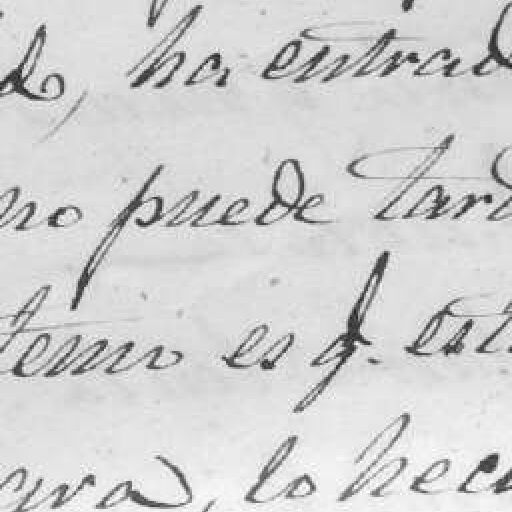 do, ha entrad
no puede tard
temo es q. est
gra, lo hec